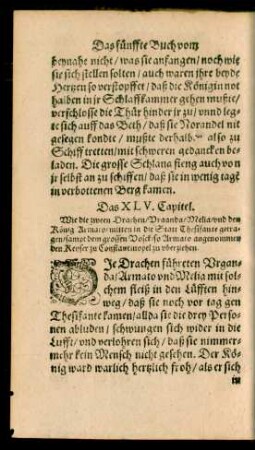 Das fünffte Buch vom
beynahe nicht / was sie anfangen / noch wie
sie sich stellen solten / auch waren ihre beyde
Hertzen so verstopffet / daß die Königin not
halben in jr Schlaffkammer gehen muste /
verschlosse die Thür hinder jr zu / vnnd leg-
te sich auff das Beth / daß sie Norandel nit
gesegen kondte / muste derhalben also zu
Schiff tretten / mit schweren gedancken be-
laden. Die grosse Schlang fieng auch von j-
r selbst an zu schiffen / daß sie in wenig tagē
in verbottenen Berg kamen.
Das XLV. Capitel.
Wie die zween Drachen / Vrganda / Melia vnd den
König Armato / mitten in die Statt Thesifante getra-
gen / sampt dem grossen Volck so Armato angenommen
den Keyser zu Constantinopel zu vberziehen.
DIe Drachen führeten Vrgan-
da / Armato vnd Melia mit sol-
chem fleiß in den Lüfften hin-
weg / daß sie noch vor tag gen
Thesifante kamen / allda sie die drey Perso-
nen abluden / schwungen sich wider in die
Lufft / vnd verlohren sich / daß sie nimmer-
mehr kein Mensch nicht gesehen. Der Kö-
nig ward warlich hertzlich froh / als er sich